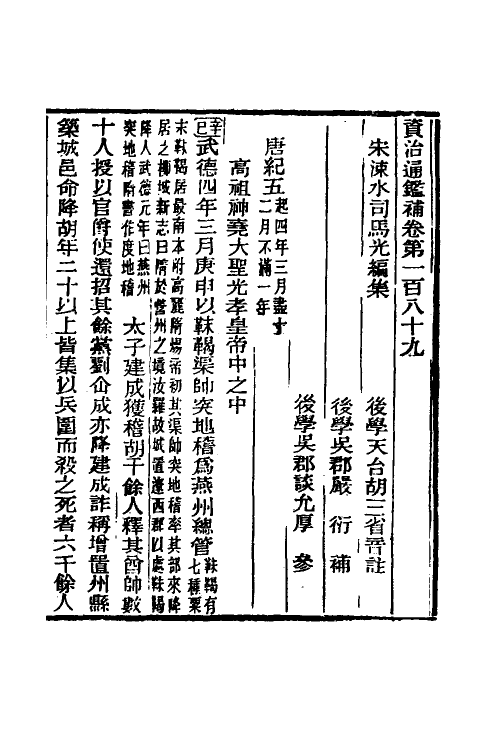 資治通鑑補卷第一百八十九
宋涑水司馬光編集 後學天台胡三省音註
後學吳郡嚴 衍 補
後學吳郡談允厚 參
唐紀五 起四年三月盡十二月不滿一年
高祖神堯大聖光孝皇帝中之中
辛巳武德四年三月庚申以靺鞨渠帥突地稽爲燕州總管 靺鞨有七種粟
末靺鞨居最南本附高麗隋煬帝初其渠帥突地稽率其部來降
居之柳城新志曰隋於營州之境汝羅故城置遼西郡以處靺鞨
降人武德元年曰燕州突地稽隋書作度地稽 太子建成獲稽胡千餘人釋其酋帥數
十人授以官爵使還招其餘黨劉仚成亦降建成詐稱增置州縣
築城邑命降胡年二十以上皆集以兵圍而殺之死者六千餘人